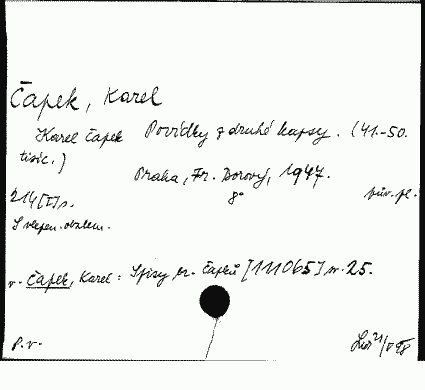 Čapek, Karel
Karel Čapek Povídky z druhé kapsy. (41.-50.
tisíc.)
Praha, Fr. Borový, 1947.
214 [I] s. 8° pův. pl.
S vlepen. obálkem.
v. Čapek, Karel: Spisy br. Čapků [111065] sv. 25.
P. v.